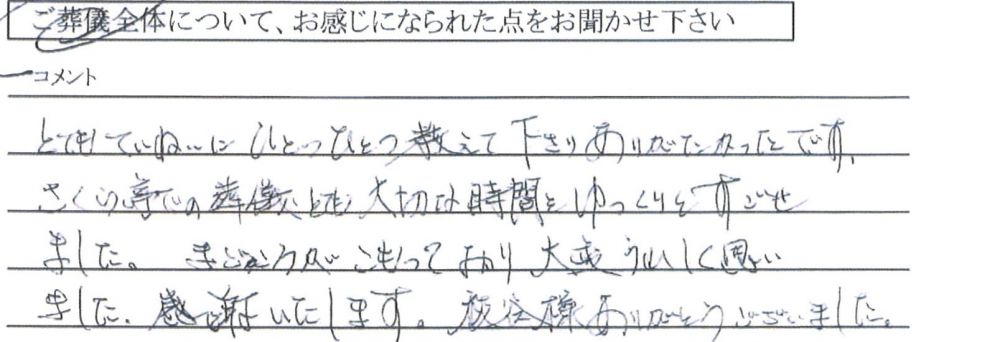 ご葬儀全体について、お感じになられた点をお聞かせ下さい
コメント
とてもていねいにひとつひとつ教えて下さりありがたかったです。
さくら亭での葬儀、とても大切な時間をゆっくりとすごせ
ました。まごころがこもっており大変うれしく思い
ました。感謝いたします。板谷様ありがとうございました。